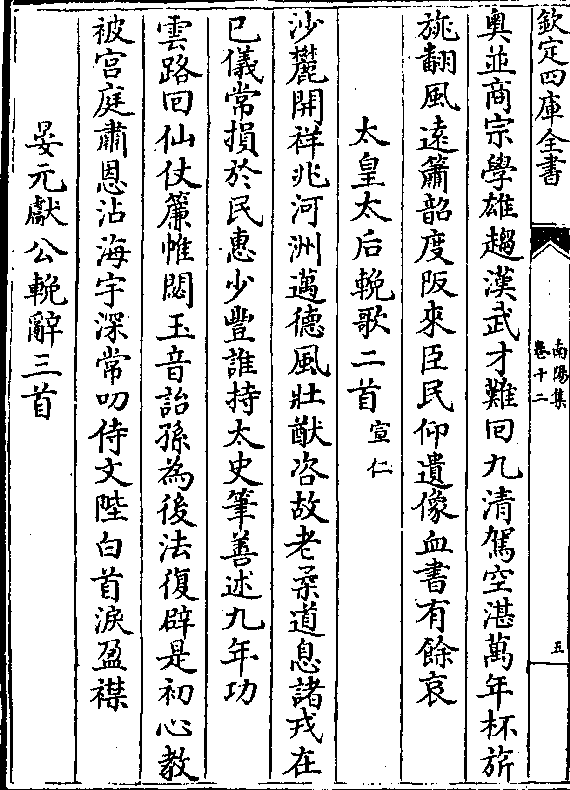 欽定四庫全書
南陽集
卷十二
五
奥並商宗學雄趨漢武才難回九清駕空湛萬年杯旂
旐翻風遠簫韶度阪來臣民仰遺像血書有餘哀
太皇太后輓歌二首宣仁
沙麓開祥兆河洲邁德風壯猷咨故老柔道息諸戎在
已儀常損於民惠少豐誰持太史筆善述九年功
雲路回仙仗簾帷閟玉音詒孫為後法復辟是初心教
被宫庭肅恩沾海宇深常叨侍文陛白首淚盈襟
晏元獻公輓辭三首